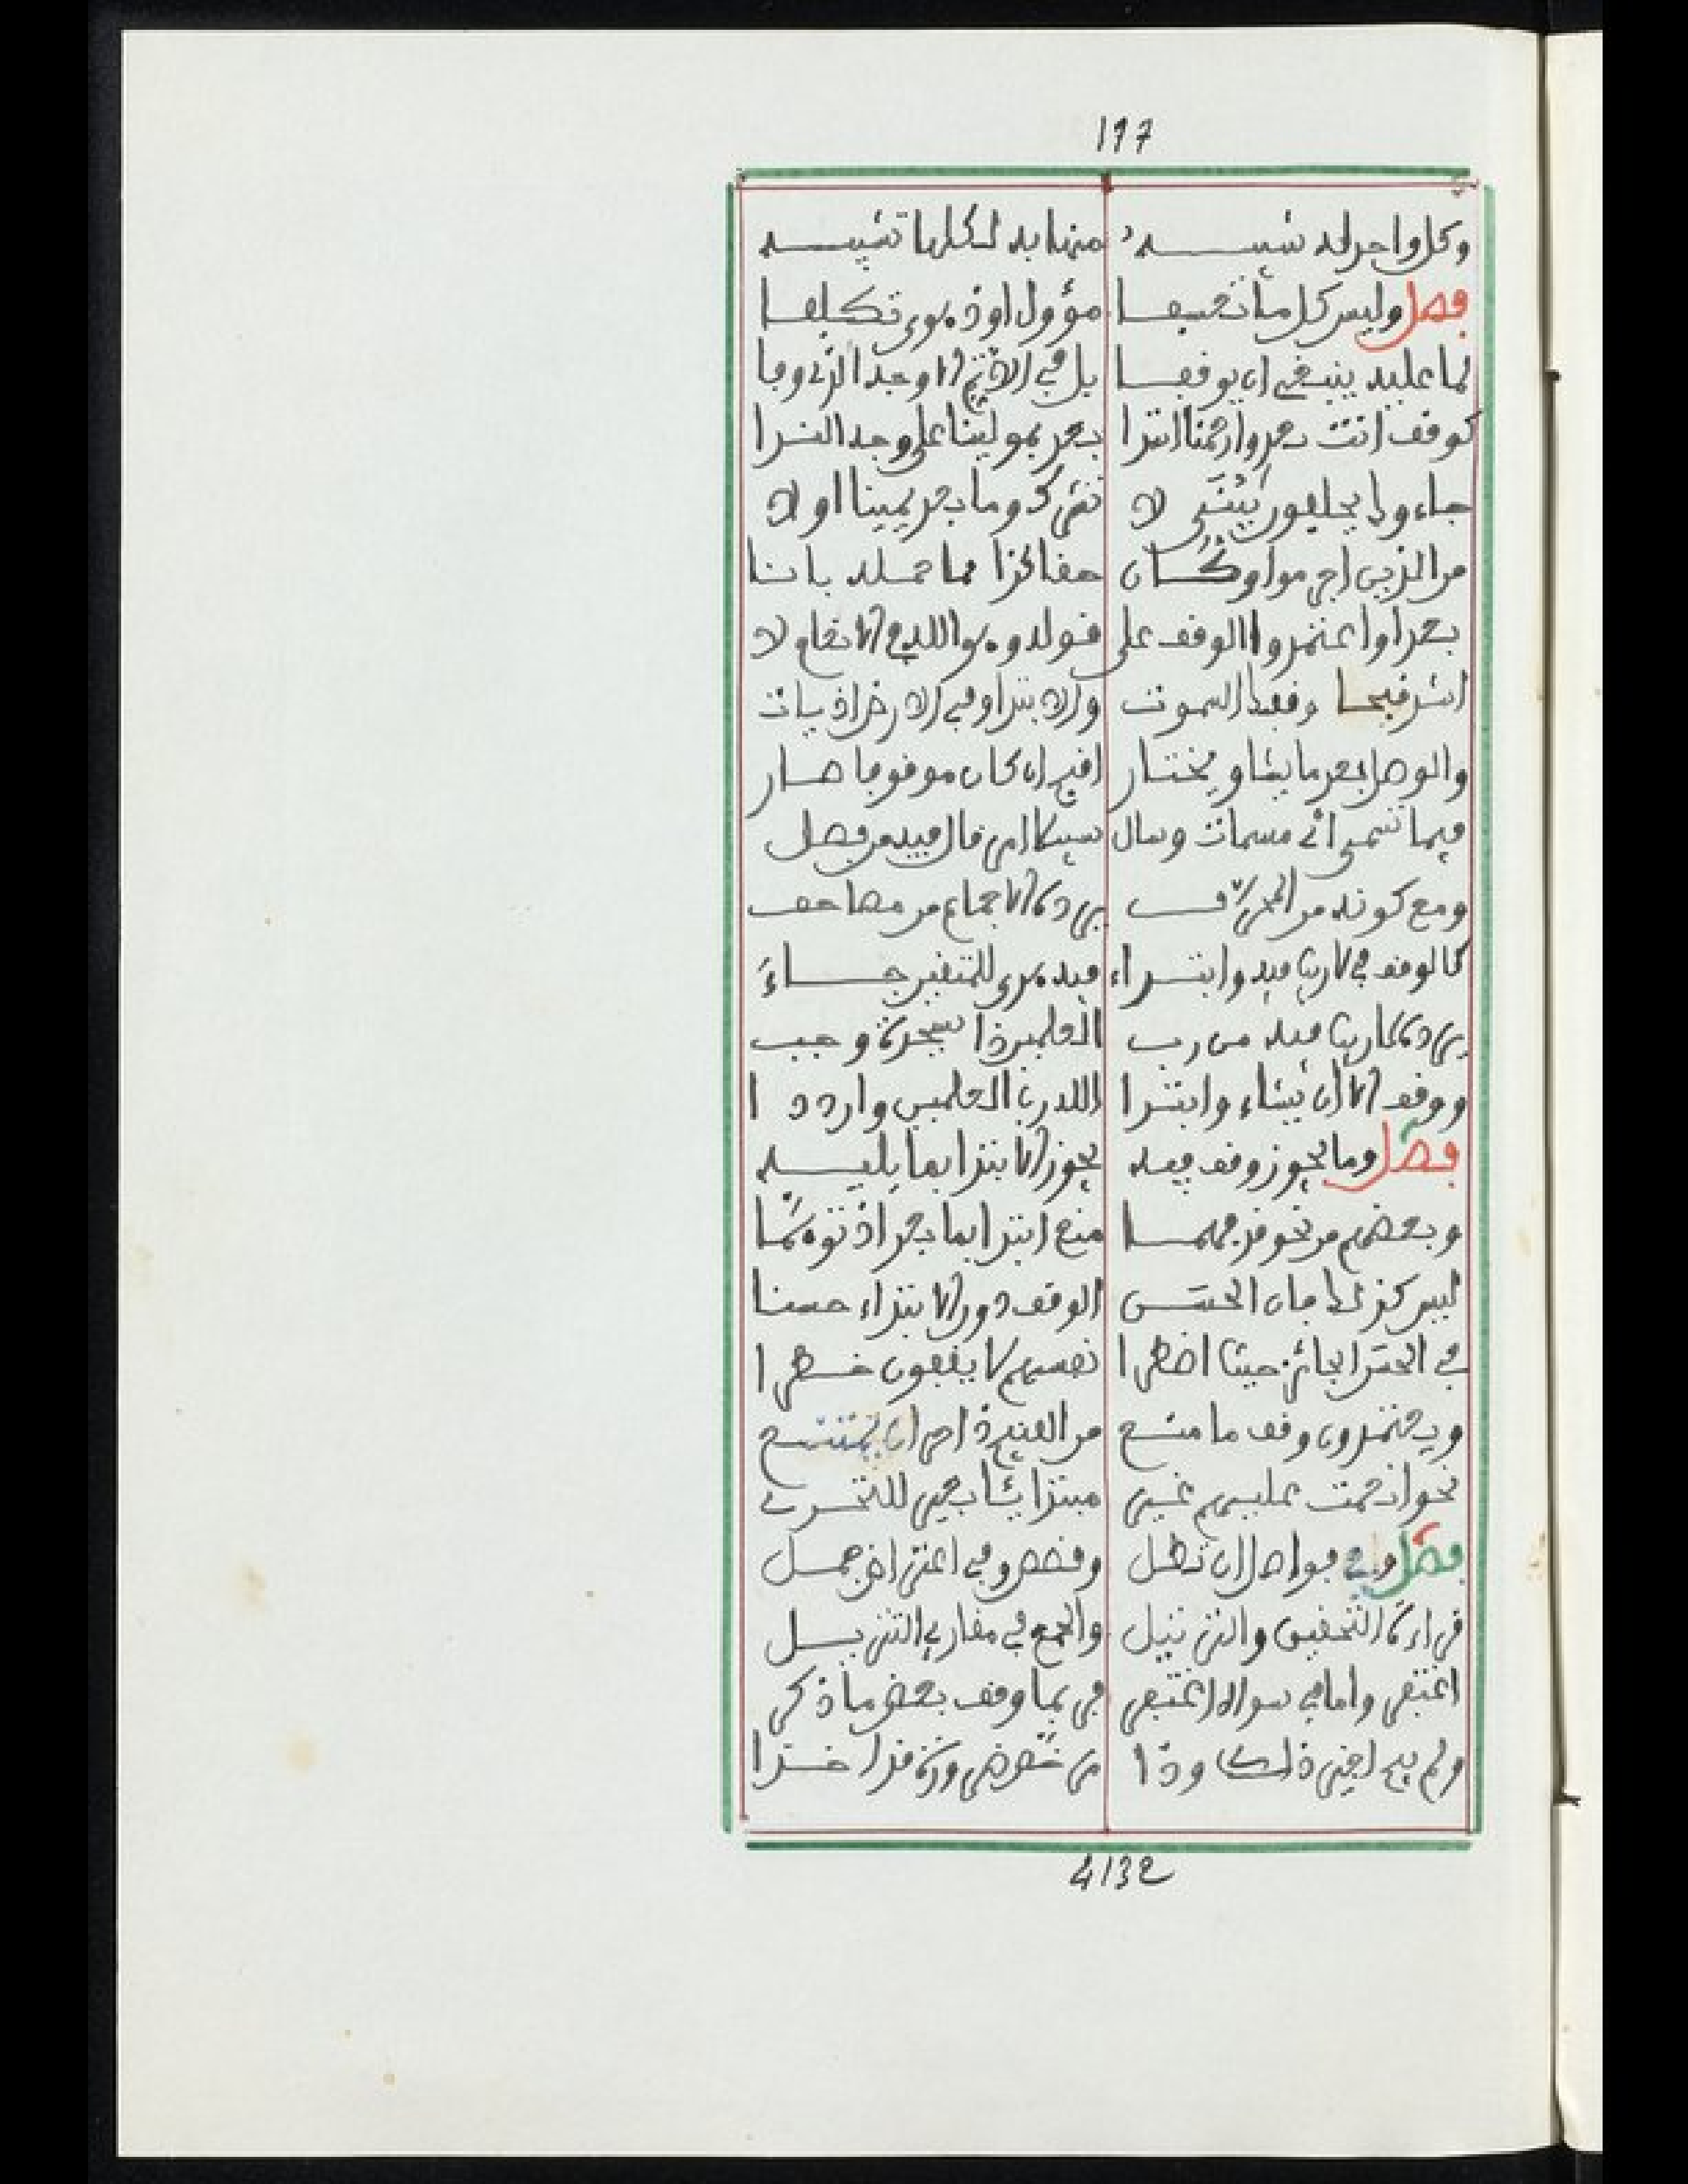 197
وكل واحد له شبيه منها به لكلها تشبيه
فصل وليس كل ما تعسفا مؤول او ذو هوى تكلفا
لما عليه ينبغي ان يوقفا بل في الاتم الاوجه الذ وفا
كوقف انت بعد وارحمنا ابتدا بعد بمولينا على وجه الندا
جاءوك يحلفون يبتدى لا تشرك وما بعد يمينا اولا
من الذين اجرموا وكان حقا كذا مما حمله بانا
بعدا او اعتمدوا الوقف على قوله وهو الله في الانعام لا
اشد قبحا وقف السموت والابتدا وفي الارض اذ يات
والوصل بعد ما يشا ويختار اقبح ان كان موقوفا صار
فيما تسمى اي مسمات وسال سبيلا من قال فيه من فصل
ومع كونه من المحرف يرده الاجماع من مصاحف
كالوقف في لا ريب فيه وابتداء فيه هدى للمتقين جاء
يرده لا ريب فيه من رب العلمين ذا بسجدة وجب
ووقف الا ان يشاء وابتدا الله رب العلمين واردد ا
فصل وما يجوز وقف فيه يجوز الابتدا بما يليه
وبعضهم من نحو قد مهما منع ابتدا بما بعد اذ توهما
ليس كذلك فان الحسن الوقف دون الابتداء حسنا
في الحسن الجائز حيث اضطرا نفسهم لا يقفون خطرا
ويعتمدون وقف ما منع من القبيح ذا من ان يمتنع
نحو انعمت عليهم غير مبتدا يشا بعين للتحري
فصل وفي فواصل ان تطل وقصص وفي اعتراض جمل
قراءة التحقيق والترتيل والجمع في مقارئ التنزيل
اغتفر واما في سواه اغتفر في بما وقف بعض ما ذكر
ولم يبح لغير ذلك وذا من خص ضرورة قد اخذا
4132